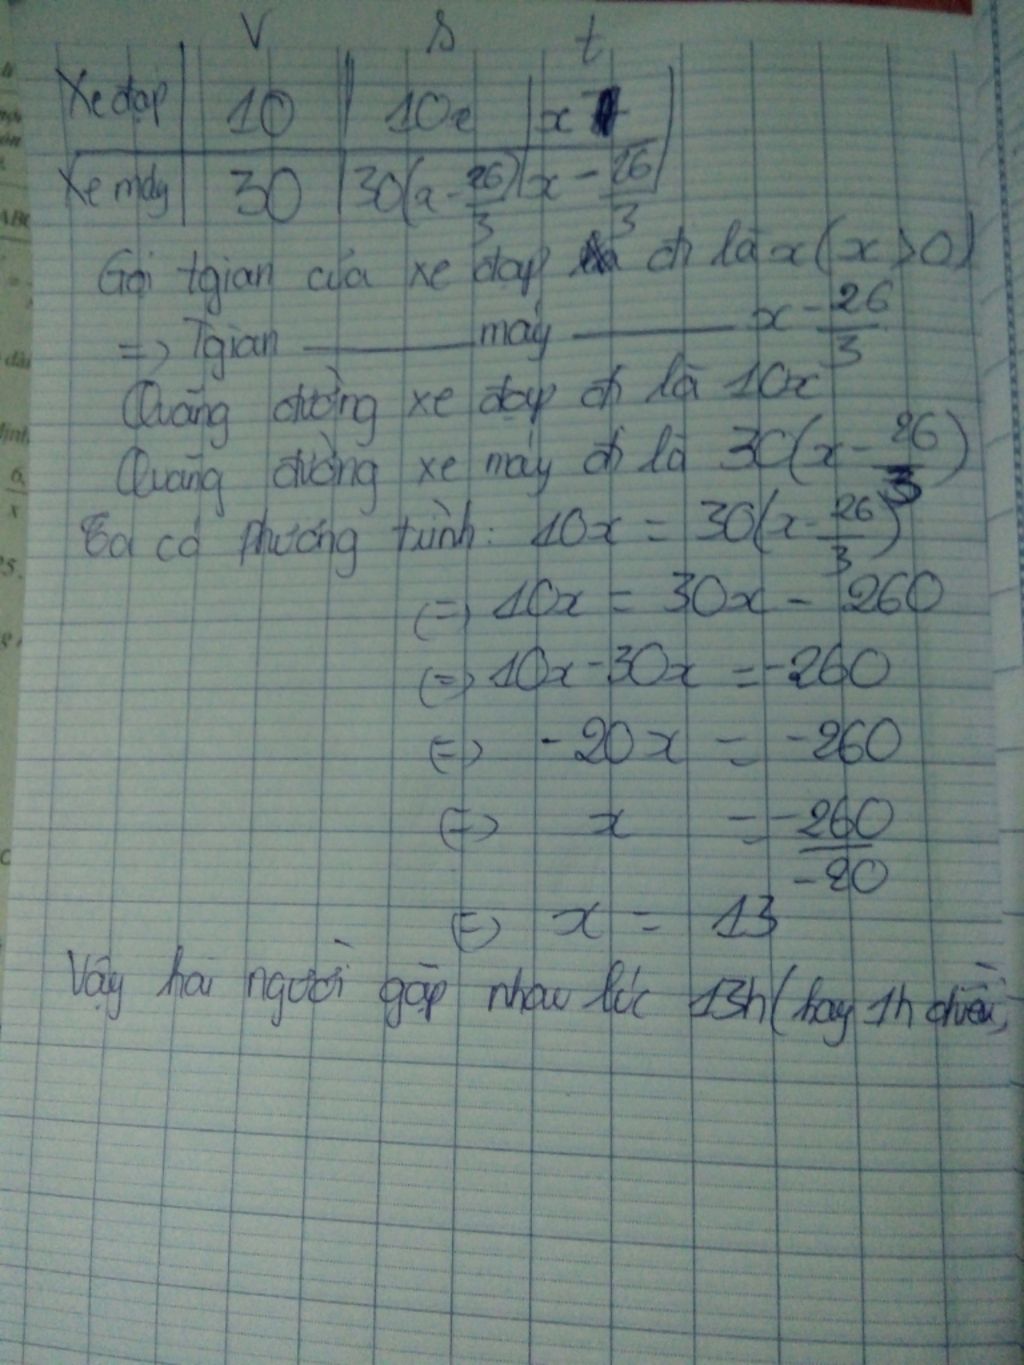 V s t
Xe đạp 10 10x x
Xe máy 30 30(x - 26/3) x - 26/3
Gọi tgian của xe đạp đi là x (x > 0)
=> Tgian ———— máy ———— x - 26/3
Quãng đường xe đạp đi là 10x
Quãng đường xe máy đi là 30(x - 26/3)
Ta có phương trình: 10x = 30(x - 26/3)
(=) 10x = 30x - 260
(=) 10x - 30x = -260
(=) -20x = -260
(=) x = -260/-20
(=) x = 13
Vậy hai người gặp nhau lúc 13h (hay 1h chiều)